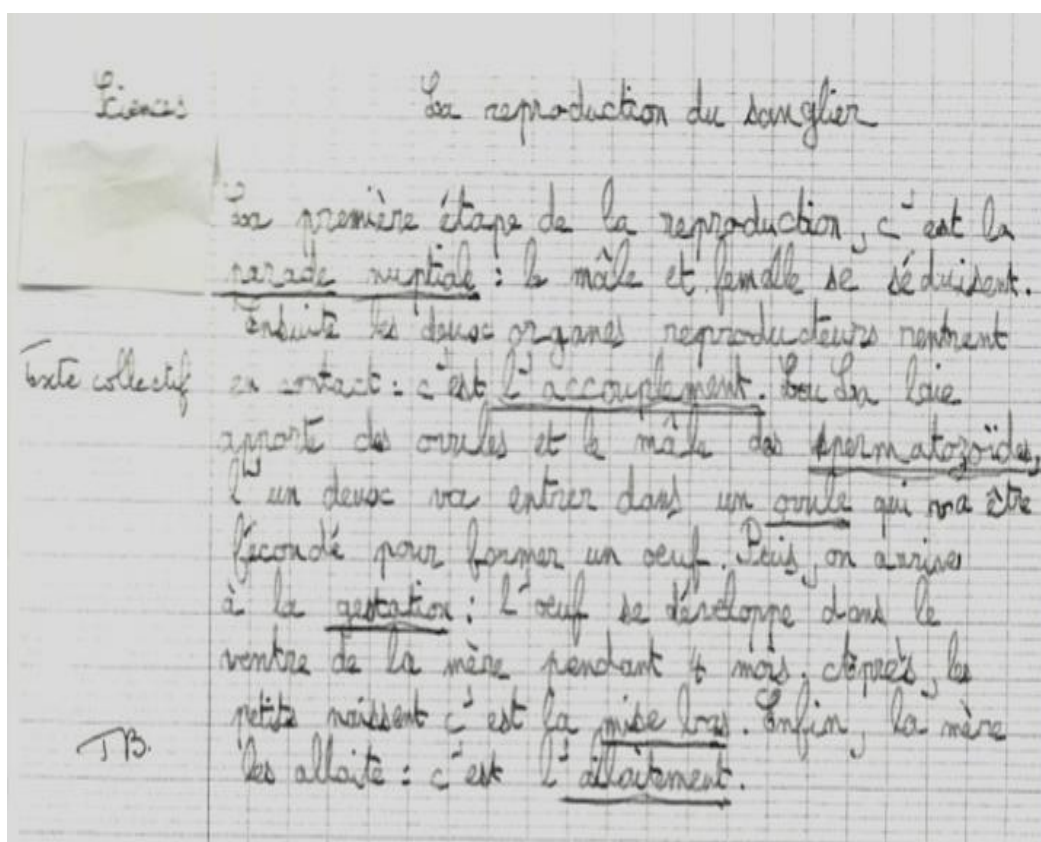 Sciences La reproduction du sanglier
La première étape de la reproduction, c'est la
parade nuptiale : le mâle et femelle se séduisent.
Ensuite les deux organes reproducteurs rentrent
Texte collectif en contact : c'est l'accouplement. La laie
apporte des ovules et le mâle des spermatozoïdes,
l'un deux va entrer dans un ovule qui va être
fécondé pour former un oeuf. Puis, on arrive
à la gestation : L'oeuf se développe dans le
ventre de la mère pendant 4 mois. Après, les
petits naissent c'est la mise bas. Enfin, la mère
TB. les allaite : c'est l'allaitement.